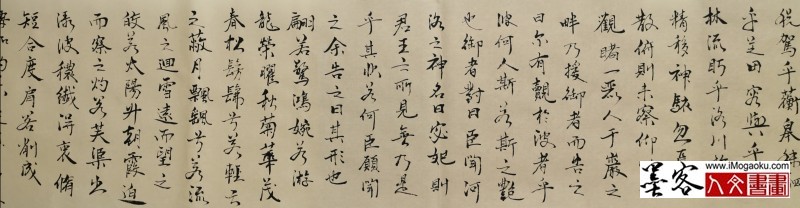 税駕乎蘅皋秣
乎芝田容與乎
林流眄乎洛川於
精移神駭忽焉
散俯則未察仰
觀睹一麗人于巖之
畔乃援御者而告之
曰尔有覿於彼者乎
彼何人斯若斯之艷
也御者對曰臣聞河
洛之神名曰宓妃則
君王之所見無乃是
乎其狀若何臣願聞
之余告之曰其形也
翩若驚鴻婉若游
龍榮曜秋菊華茂
春松髣髴兮若輕雲
之蔽月飄飄兮若流
風之迴雪遠而望之
皎若太陽升朝霞迫
而察之灼若芙蕖出
淥波穠纖得衷脩
短合度肩若削成
www.iMogaoku.com
墨客
人文書畫